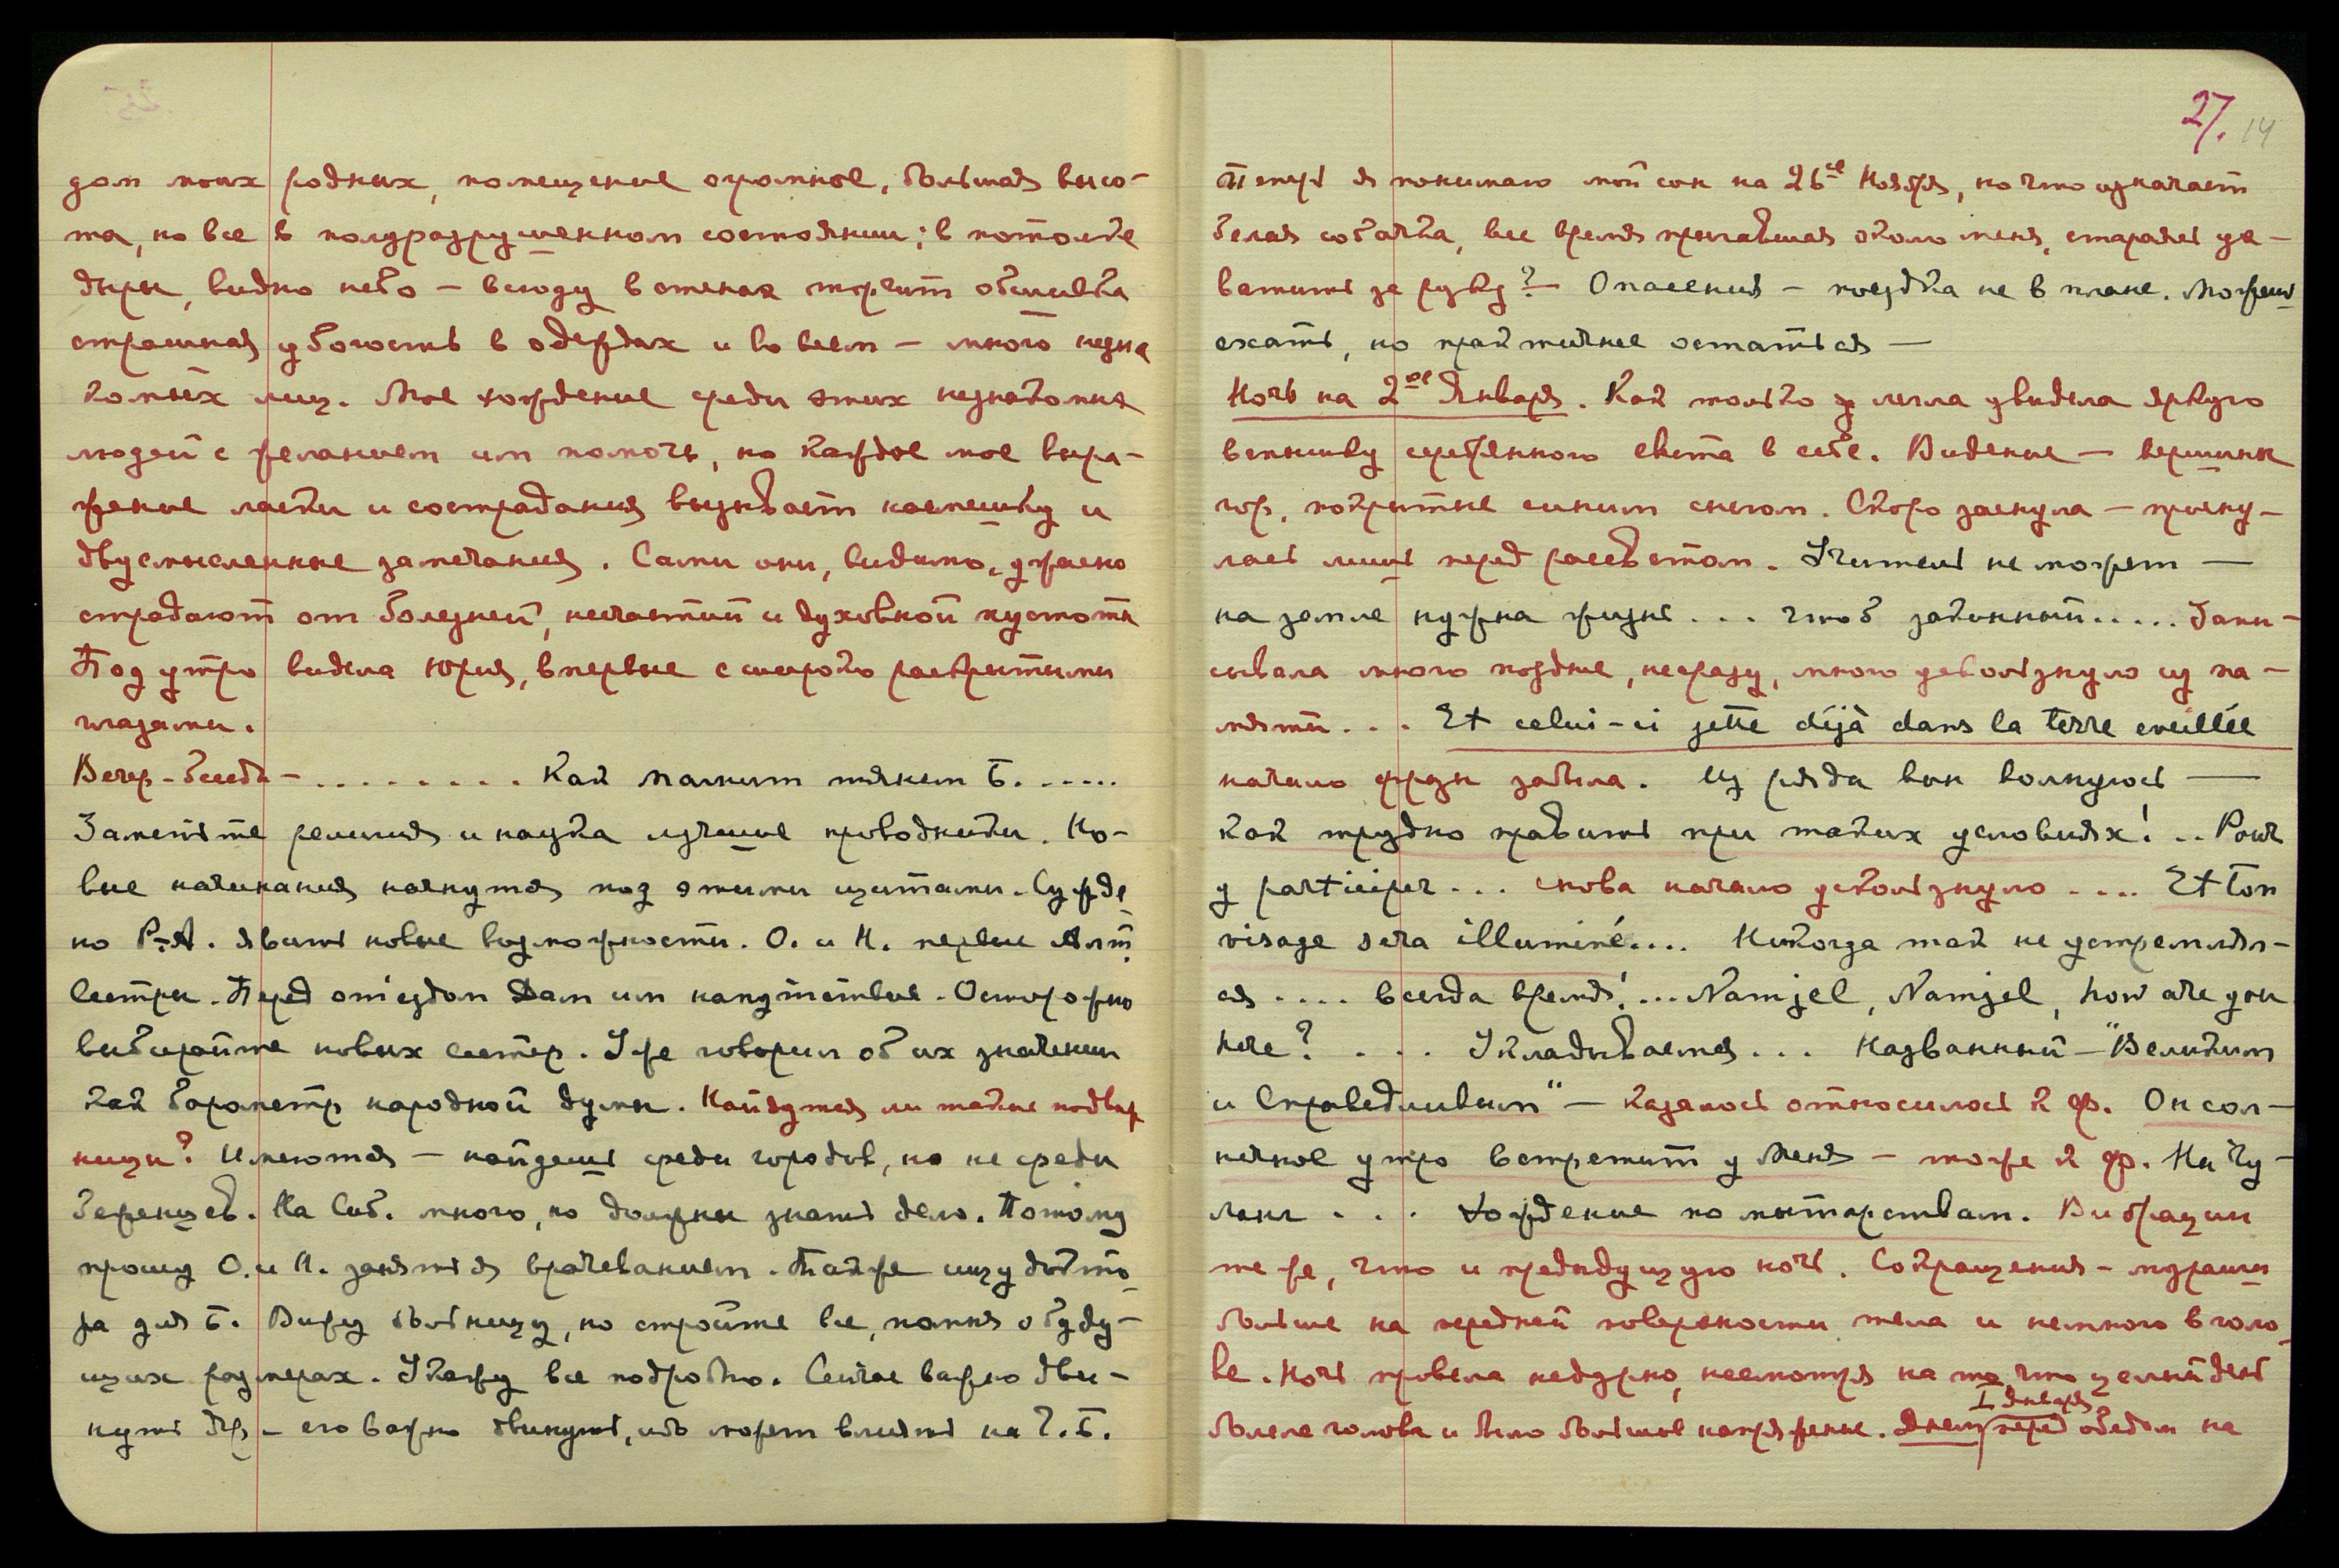 дом моих родных, помещение огромное, большая высо-
та, но все в полуразрушенном состоянии; в потолке
дыры, видно небо – всюду в стенах торчит обшивка
страшная убогость в одеждах и во всем – много незна
комых лиц. Мое хождение среди этих незнакомых
людей с желанием им помочь, но каждое мое выра-
жение ласки и сострадания вызывает насмешку и
двусмысленные замечания. Сами они, видимо, ужасно
страдают от болезней, несчастий и духовной пустоты
Под утро видела Юрия, впервые с широко раскрытыми
глазами.
Вечер-беседа – . . . . . . . . Как магнит тянет Б. . . . . .
Заметьте религия и наука лучшие проводники. Но-
вые начинания начнутся под этими щитами. Сужде-
но Р.-А. явить новые возможности. О. и Н. первые Алт.
Сестры. Перед отъездом Дам им напутствие. Осторожно
выбирайте новых сестер. Уже говорил об их значении
как барометр народной думы. Найдутся ли такие подвиж
ницы? Имеются – найдешь среди городов, но не среди
беженцев. На Сиб. много, но должны знать дело. Потому
прошу О. и Н. заняться врачеванием. Также ищу докто-
ра для Б. Вижу больницу, но стройте все, помня о буду-
щих размерах. Укажу все подробно. Сейчас важно дви-
нуть др – его важно двинуть, ибо может влиять на Г. Б.
27. 14
Теперь я понимаю мой сон на 26ое Ноября, но что означает
белая собачка, все время прыгавшая около меня, стараясь ух-
ватить за руку? – Опасения – поездка не в плане. Можешь
ехать, но практичнее остаться —
Ночь на 2ое Января. Как только легла увидела яркую
вспышку серебряного света в себе. Видение – вершины
гор, покрытые синим снегом. Скоро заснула – просну-
лась лишь перед рассветом. Учитель не может —
на земле нужна жизнь . . . чтоб законный . . . . . Запи-
сывала много позднее, не сразу, много ускользнуло из па-
мяти . . . Et celui-ci jette déjà dans la terre eveillée
начало фразы забыла. Из ряда вон волнуюсь —
как трудно править при таких условиях! . . Pour
y participer . . . снова начало ускользнуло . . . . Et ton
visage sera illuminé.... Никогда так не устремлял-
ся .... всегда время! ... Namjel, Namjel, how are you
here? . . . . Укладывается . . . Названный – "Великим
и Справедливым" – казалось относилось к Ф. Он сол-
нечное утро встретит у Меня – тоже к Ф. На Чу-
ланг . . . Хождение по мытарствам. Вибрации
те же, что и предыдущую ночь. Сокращения – мурашки
больше на передней поверхности тела и немного в голо-
ве. Ночь провела недурно, несмотря на то, что целый день
I Января
болела голова и было большое напряжение. Днем перед обедом на